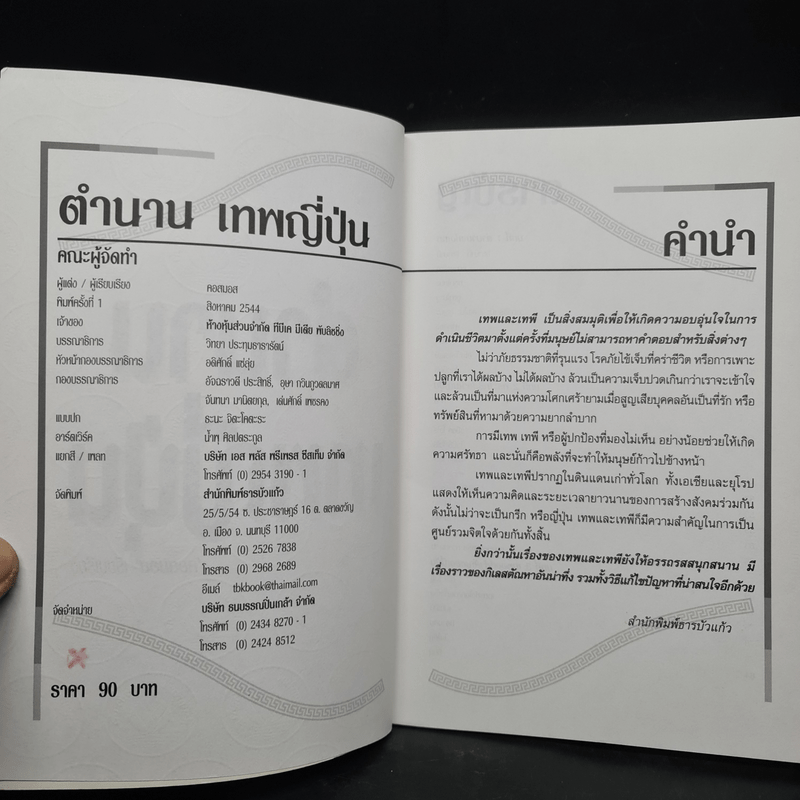 ตำนาน เทพญี่ปุ่น
คณะผู้จัดทำ
ผู้แต่ง / ผู้เรียบเรียง คอสมอส
พิมพ์ครั้งที่ 1 สิงหาคม 2544
เจ้าของ ห้างหุ้นส่วนจำกัด ทีบีเค มีเดีย พับลิชชิ่ง
บรรณาธิการ วิทยา ประทุมธารารัตน์
หัวหน้ากองบรรณาธิการ อดิศักดิ์ แซ่ลุ่ย
กองบรรณาธิการ อัจฉราวดี ประสิทธิ์, อุษา
จันทนา มานิตยกุล, เด่นศักดิ์ เพชรคง
แบบปก ธะนะ จิตะโคตะระ
อาร์ตเวิร์ค น้ำพุ ศิลปตระกูล
แยกสี / เพลท บริษัท เอส พลัส พรีเพรส ซีสเท็ม จำกัด
โทรศัพท์ (0) 2954 3190 - 1
จัดพิมพ์ สำนักพิมพ์ธารบัวแก้ว
25/5/54 ซ. ประชาราษฎร์ 16 ต. ตลาดขวัญ
อ. เมือง จ. นนทบุรี 11000
โทรศัพท์ (0) 2526 7838
โทรสาร (0) 2968 2689
อีเมล์ tbkbook@thaimail.com
จัดจำหน่าย บริษัท ธนบรรณปิ่นเกล้า จำกัด
โทรศัพท์ (0) 2434 8270 - 1
โทรสาร (0) 2424 8512
ราคา 90 บาท
คำนำ
เทพและเทพี เป็นสิ่งสมมุติเพื่อให้เกิดความอบอุ่นใจในการ
ดำเนินชีวิตมาตั้งแต่ครั้งที่มนุษย์ไม่สามารถหาคำตอบสำหรับสิ่งต่างๆ
ไม่ว่าภัยธรรมชาติที่รุนแรง โรคภัยไข้เจ็บที่คร่าชีวิต หรือการเพาะ
ปลูกที่เราได้ผลบ้าง ไม่ได้ผลบ้าง ล้วนเป็นความเจ็บปวดเกินกว่าเราจะเข้าใจ
และล้วนเป็นที่มาแห่งความโศกเศร้ายามเมื่อสูญเสียบุคคลอันเป็นที่รัก หรือ
ทรัพย์สินที่หามาด้วยความยากลำบาก
การมีเทพ เทพี หรือผู้ปกป้องที่มองไม่เห็น อย่างน้อยช่วยให้เกิด
ความศรัทธา และนั่นก็คือพลังที่จะทำให้มนุษย์ก้าวไปข้างหน้า
เทพและเทพีปรากฏในดินแดนเก่าทั่วโลก ทั้งเอเชียและยุโรป
แสดงให้เห็นความคิดและระยะเวลายาวนานของการสร้างสังคมร่วมกัน
ดังนั้นไม่ว่าจะเป็นกรีก หรือญี่ปุ่น เทพและเทพีก็มีความสำคัญในการเป็น
ศูนย์รวมจิตใจด้วยกันทั้งสิ้น
ยิ่งกว่านั้นเรื่องของเทพและเทพียังให้อรรถรสสนุกสนาน มี
เรื่องราวของกิเลสตัณหาอันน่าทึ่ง รวมทั้งวิธีแก้ไขปัญหาที่น่าสนใจอีกด้วย
สำนักพิมพ์ธารบัวแก้ว